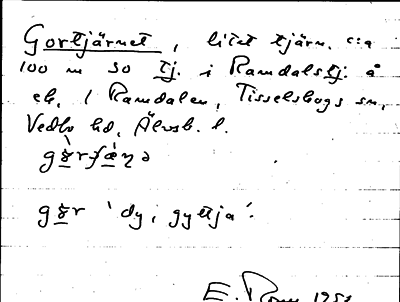 Gortjärnet, litet tjärn c:a
100 m SO tj. i Ramdalstj. å
ek. i Ramdalen, Tisselskogs sn,
Vedbo hd, Älvsb. l.
gör 'dy, gyttja'.
E. 195